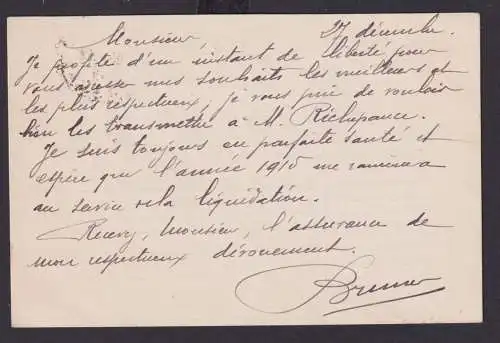 Monsieur, 27 décembre.
Je profite d'un instant de liberté pour
vous adresser mes souhaits les meilleurs et
les plus respectueux, je vous prie de vouloir
bien les transmettre à M. Richepance.
Je suis toujours en parfaite santé et
espère que l'année 1915 me ramènera
au service de la liquidation.
Recevez, Monsieur, l'assurance de
mon respectueux dévouement.
Brunner